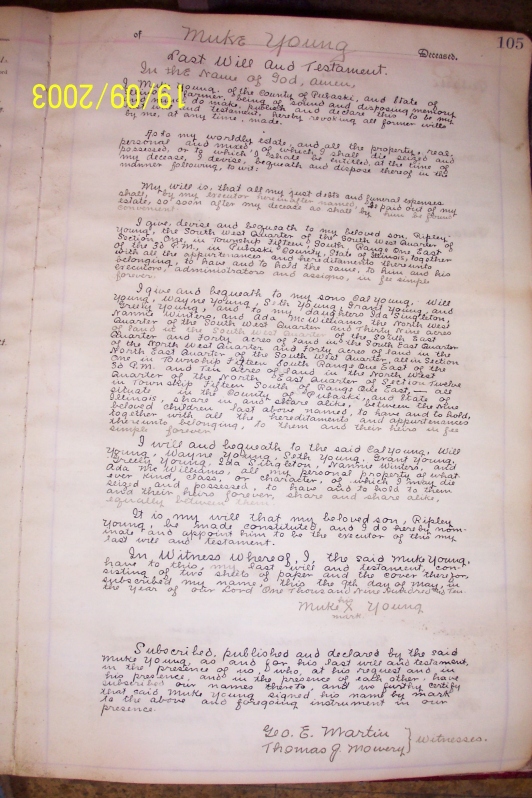 of Muke Young Deceased. 105
Last Will and Testament.
In the Name of God, Amen,
I, Muke Young, of the County of Pulaski, and State of
farmer, being of sound and disposing memory
do make, publish and declare this to be my
and testament, hereby revoking all former wills
by me, at any time, made.
As to my worldly estate, and all the property, real,
personal and mixed, of which I shall die seized and
possessed, or to which I shall be entitled, at the time of
my decease, I devise, bequeath and dispose thereof in the
manner following, to wit:
My will is, that all my just debts and funeral expenses
shall, by my executor hereinafter named, be paid out of my
estate, so soon after my decease as shall by him be found
convenient.
I give, devise and bequeath to my beloved son, Ripley
Young, the South West Quarter of the South West Quarter of
Section One, in Township Fifteen South, Range One East
of the 3d P.M., in Pulaski County, State of Illinois, together
with all the appurtenances and hereditaments thereunto
belonging, to have and to hold the same, to him and his
executors, administrators and assigns, in fee simple
forever.
I give and bequeath to my sons Cal Young, Will
Young, Wayne Young, Seth Young, Grant Young, and
Greely Young, and to my daughters Ida Singleton,
Nannie Winters, and Ada McWilliams, the North West
Quarter of the South West Quarter and Thirty Nine acres
of land in the South West Quarter of the South East
Quarter and Forty acres of land in the South East Quarter
of the North West Quarter and Forty acres of land in the
North East Quarter of the South West Quarter, all in Section
One in Township Fifteen South Range One East of the
3d P.M. and Ten acres of land in the North West
Quarter of the North East Quarter of Section Twelve
in Township Fifteen South of Range One East, — are
situate in the County of Pulaski, and State of
Illinois, share and share alike, between the nine
beloved children last above named, to have and to hold,
together with all the hereditaments and appurtenances
thereunto belonging, to them and their heirs in fee
simple forever.
I will and bequeath to the said Cal Young, Will
Young, Wayne Young, Seth Young, Grant Young,
Greely Young, Ida Singleton, Nannie Winters, and
Ada McWilliams all my personal property of what
ever kind, class, or character, of which I may die
seized and possessed, to have and to hold to them
and their heirs forever, share and share alike,
equally between them.
It is my will that my beloved son, Ripley
Young, be made constituted, and I do hereby nom-
inate and appoint him to be the executor of this my
last will and testament.
In Witness Whereof, I, the said Muke Young,
have to this, my last will and testament, con-
sisting of two sheets of paper and the cover thereon,
subscribed my name, this the 9th day of May, in
the Year of our Lord One Thousand Nine Hundred and Ten.
his
Muke X Young
mark
Subscribed, published and declared by the said
Muke Young, as and for his last will and testament,
in the presence of us, who, at his request and in
his presence, and in the presence of each other, have
subscribed our names thereto, and we further certify
that said Muke Young signed his name by mark
to the above and foregoing instrument in our
presence.
Geo. E. Martin
Thomas J. Mowery } Witnesses.
19/09/2003